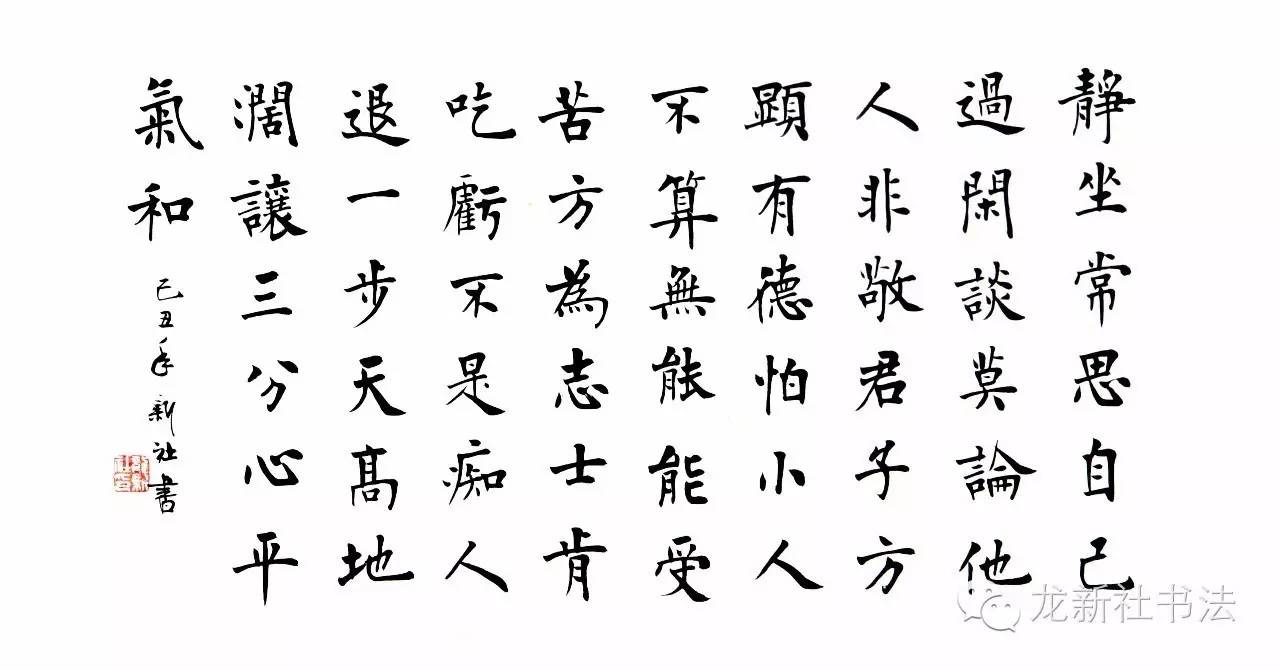 靜坐常思自己
過閑談莫論他
人非敬君子方
顯有德怕小人
不算無能能受
苦方為志士肯
吃虧不是痴人
退一步天高地
濶讓三分心平
氣和
己丑年新社書
龙新社书法